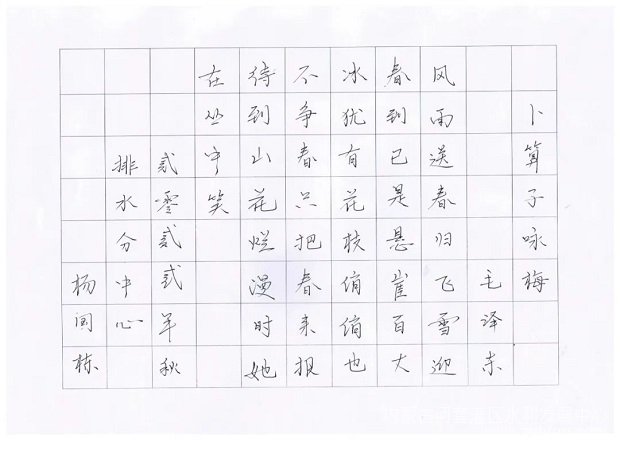 卜算子咏梅
毛泽东
风雨送春归飞雪迎
春到已是悬崖百大
冰犹有花枝俏俏也
不争春只把春来报
待到山花烂漫时她
在丛中笑
贰零贰贰年秋
排水分中心
杨栋